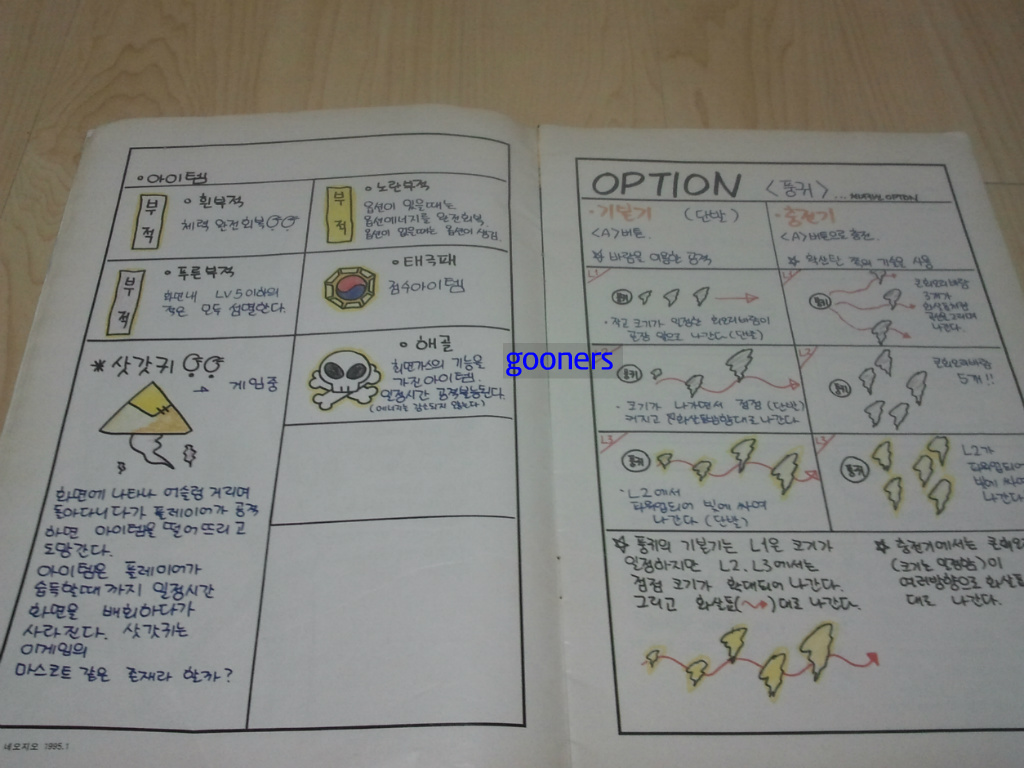 아이템
부적
흰부적
체력 완전회복
부적
노란부적
옵션이 있을때는
옵션에너지를 완전회복,
옵션이 없을때는 옵션이 생김.
부적
푸른부적
화면내 LV5이하의
적은 모두 섬멸한다.
태극패
점수아이템
해골
화면가스의 기능을
가진아이템.
일정시간 공격불능된다.
(에너지는 감소되지 않는다)
*삿갓귀
→ 게임중
화면에 나타나 어슬렁 거리며
돌아다니다가 플레이어가 공격
하면 아이템을 떨어뜨리고
도망간다.
아이템은 플레이어가
습득할때 까지 일정시간
화면을 배회하다가
사라진다. 삿갓귀는
이게임의
마스코트 같은 존재라 할까?
네오지오 1995.1
gooners
OPTION <풍귀>
OPTION
·기본기 (단발)
<A>버튼.
☆ 바람을 이용한 공격
·충전기
<A>버튼으로 충전.
사용
L1
풍귀
·작고 크기가 일정한 회오리바람이
앞으로 나간다.(단발)
L1
풍귀
회오리바람
3개가
나간다.
L2
풍귀
·크기가 나가면서 점점 (단발)
커지고 대로 나간다.
L2
풍귀
회오리바람
5개!!
L3
풍귀
·L2에서
파워업되어 빛에 싸여
나간다 (단발)
L3
풍귀
L2가
파워업되어
빛에 싸여
나간다.
☆ 풍귀의 기본기는 L1은 크기가
일정하지만 L2. L3에서는
점점 크기가 확대되어 나간다.
그리고 화살표(→)대로 나간다.
☆ 충전기에서는
(크기는 일정함)이
여러방향으로 화살표
대로 나간다.